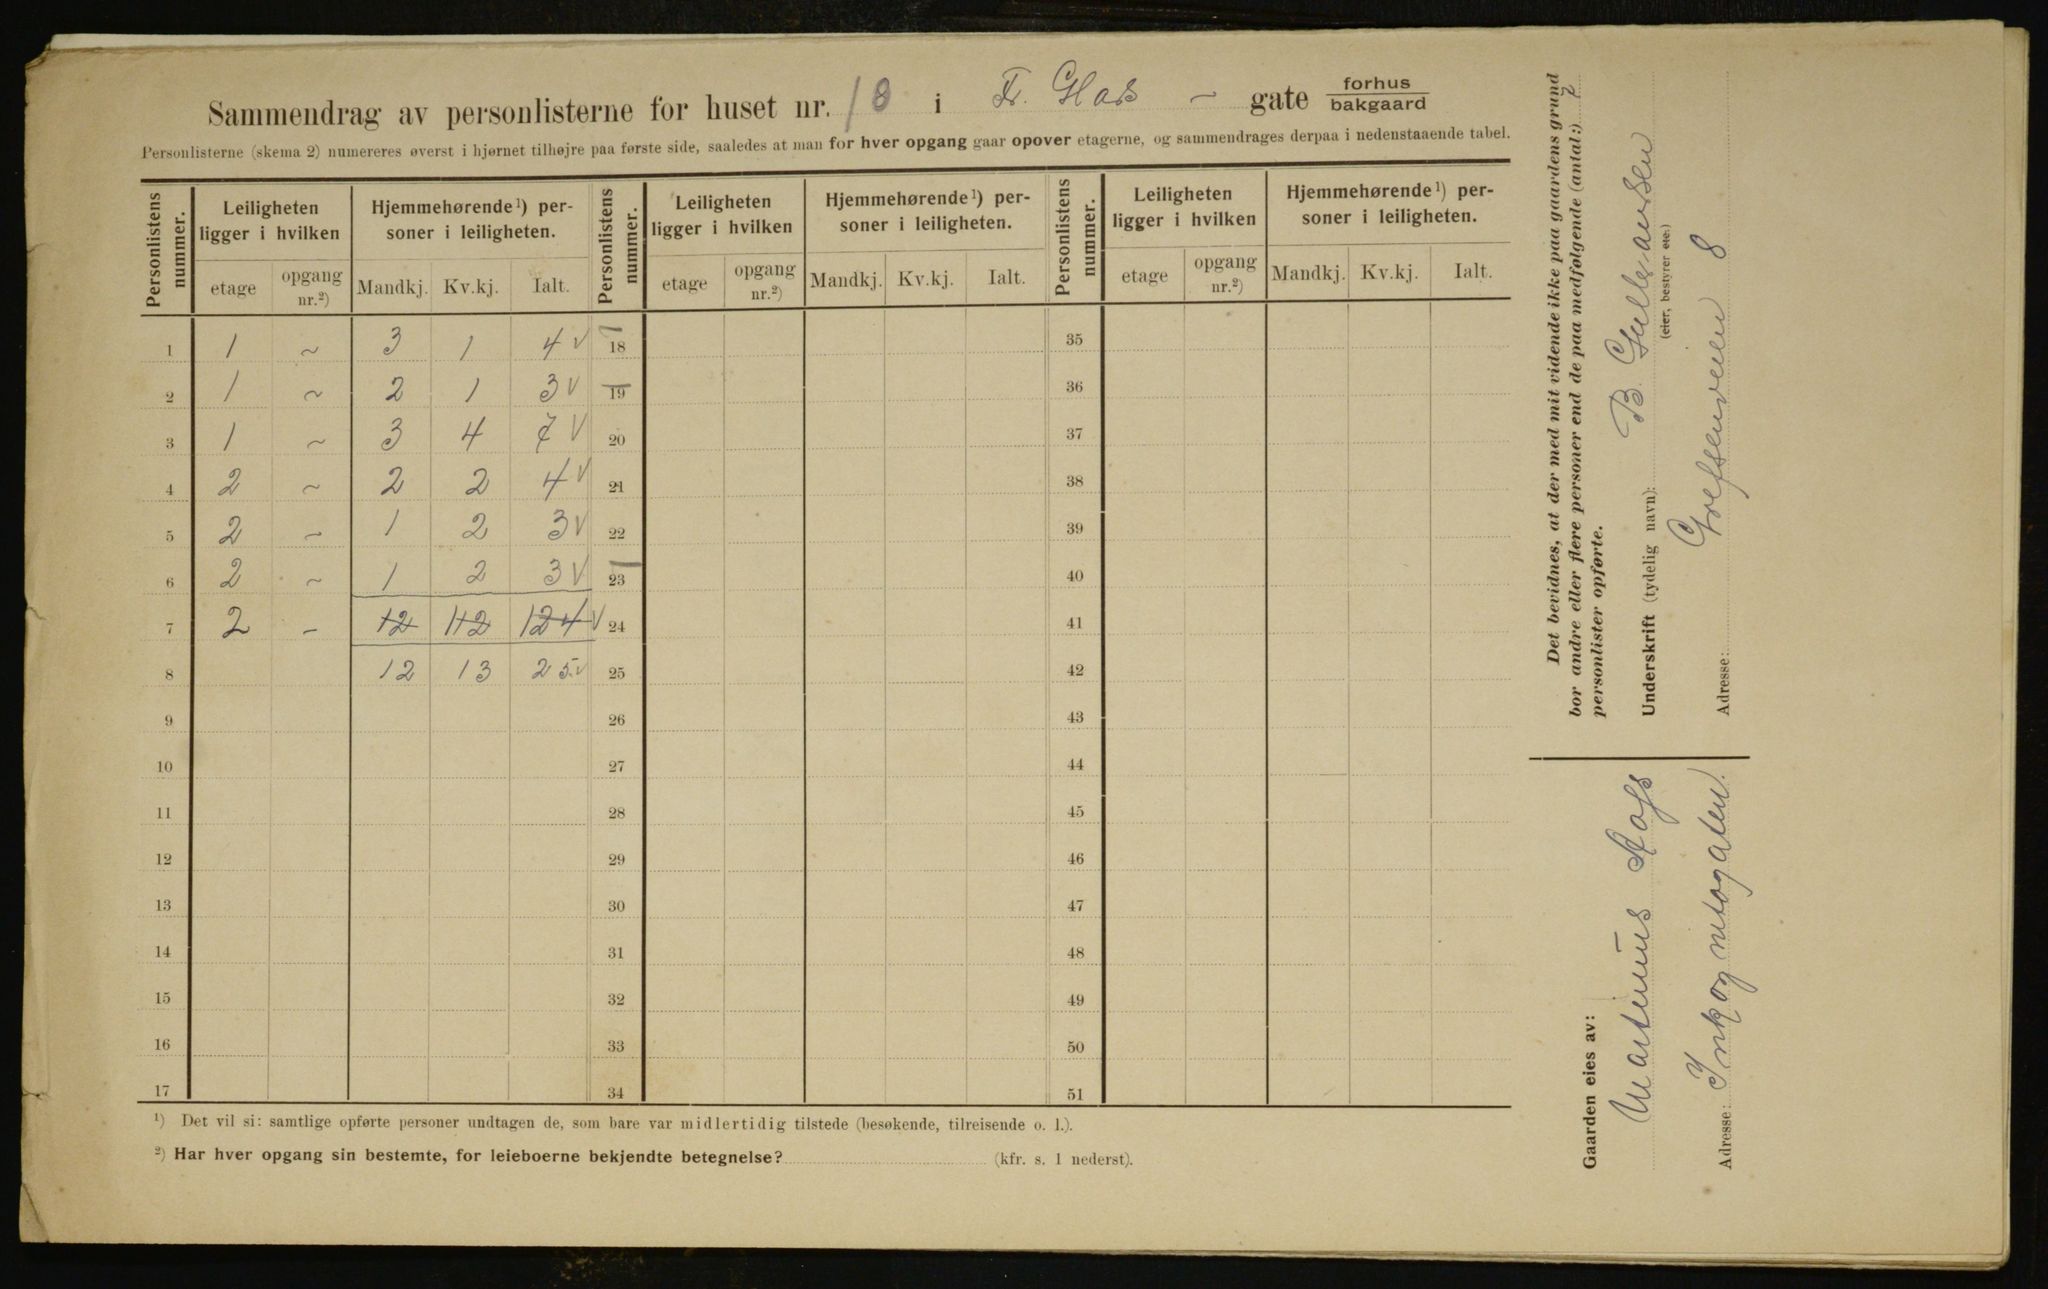 Sammendrag av personlisterne for huset nr. 18 i Fr. Glads – gate forhus
bakgaard
Personlisterne (skema 2) numereres øverst i hjørnet tilhøjre paa første side, saaledes at man for hver opgang gaar opover etagerne, og sammendrages derpaa i nedenstaaende tabel.
Personlistens nummer. Leiligheten ligger i hvilken Hjemmehørende¹) personer i leiligheten. Personlistens nummer. Leiligheten ligger i hvilken Hjemmehørende¹) personer i leiligheten. Personlistens nummer. Leiligheten ligger i hvilken Hjemmehørende¹) personer i leiligheten.
etage opgang nr.²) Mandkj. Kv.kj. Ialt. etage opgang nr.²) Mandkj. Kv.kj. Ialt. etage opgang nr.²) Mandkj. Kv.kj. Ialt.
1 1 ~ 3 1 4 v 18 35
2 1 ~ 2 1 3 v 19 36
3 1 ~ 3 4 7 v 20 37
4 2 ~ 2 2 4 v 21 38
5 2 ~ 1 2 3 v 22 39
6 2 ~ 1 2 3 v 23 40
7 2 – 12 112 124 v 24 41
8 12 13 25 v 25 42
9 26 43
10 27 44
11 28 45
12 29 46
13 30 47
14 31 48
15 32 49
16 33 50
17 34 51
¹) Det vil si: samtlige opførte personer undtagen de, som bare var midlertidig tilstede (besøkende, tilreisende o. l.).
²) Har hver opgang sin bestemte, for leieboerne bekjendte betegnelse? (kfr. s. 1 nederst).
Det bevidnes, at der med mit vidende ikke paa gaardens grund
bor andre eller flere personer end de paa medfølgende (antal:) 7
personlister opførte.
Underskrift (tydelig navn): B. Gulbrandsen
(eier, bestyrer etc.)
Adresse: Grefsenveien 8
Gaarden eies av:
Martinius
Adresse: Inkognitogaten.